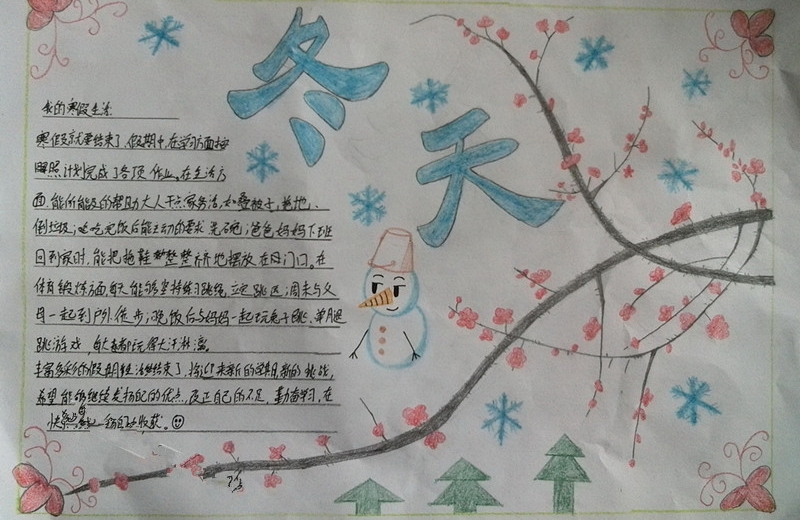 冬天
我的寒假生活
寒假就要结束了,假期中,在学习方面按
照计划完成了各项作业。在生活方
面,能所能及的帮助大人干点家务活,如叠被子,拖地、
倒垃圾;吃完饭后能主动的要求洗碗;爸爸妈妈下班
回到家时,能把拖鞋整整齐齐地摆放在门口。在
体育锻炼方面每天能够坚持练习跳绳,立定跳远;周末与父
母一起到户外徒步;晚饭后与妈妈一起玩兔子跳、单腿
跳游戏,每天都玩得大汗淋漓。
丰富多彩的假期生活结束了,将迎来新的学期,新的挑战,
希望能够继续发扬自己的优点,改正自己的不足,勤奋学习,在
快 收获。